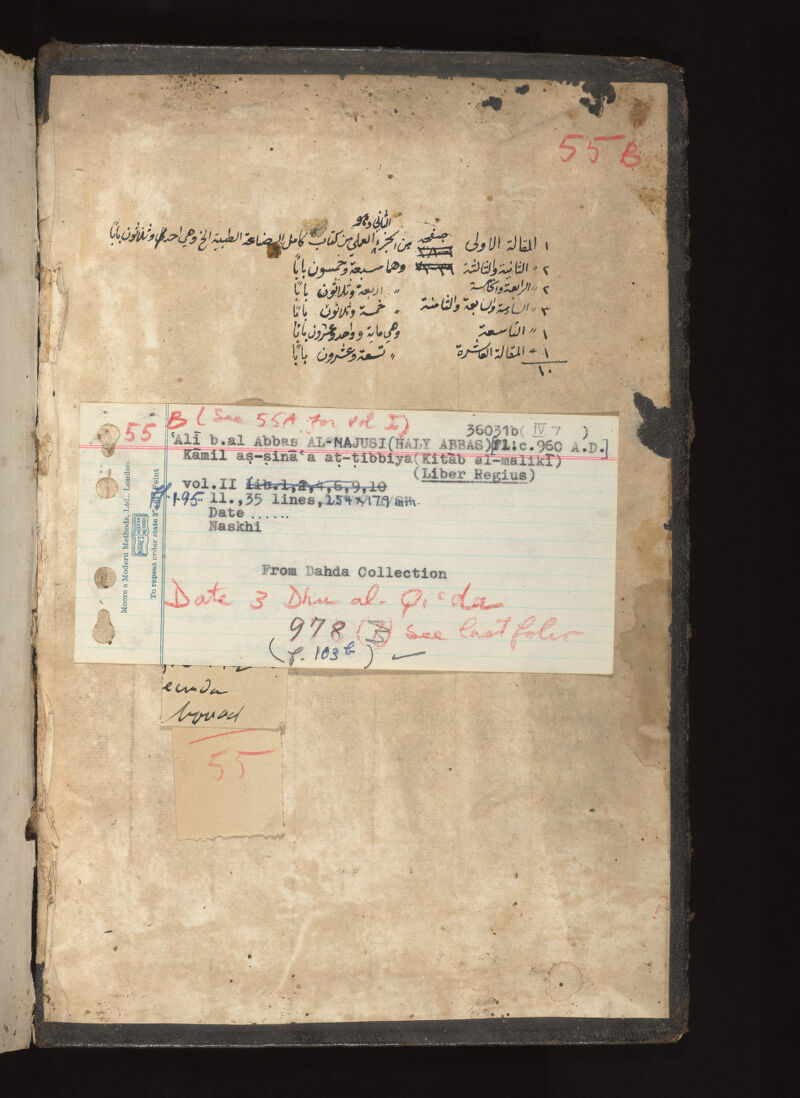 55 B
الثاني وهو
١ المقالة الاولى صفحه من الجزء العملي من كتاب كامل الصناعة الطبية الخ وهي احد وثلاثون بابًا
٢ " الثانية والثالثة وهما سبعة وخمسون بابًا
٢ " الرابعة والخامسة " اربعة وثلاثون بابًا
٣ " السادسة والسابعة والثامنة " خمسة وثلاثون بابًا
١ " التاسعة وهي ماية وواحد وعشرون بابًا
١ " المقالة العاشرة " تسعة وعشرون بابًا
١٠
55 B (See 55A for vol I)
36031b( IV 7 )
'Alī b.al Abbas AL-MAJUSI(HALY ABBAS)[fl:c.960 A.D.]
Kāmil aṣ-ṣinā'a aṭ-ṭibbiya(Kitāb al-malikī)
(Liber Regius)
vol.II lib.1,2,4,6,9,10
195 ll.,35 lines,254x179 mm.
Date ......
Naskhi
From Dahda Collection
Date 3 Dhu al-Qi'da
978 (H) See last folio
(f. 103b) ✓
Moore's Modern Methods, Ltd., London
To repeat order state 3 Feint
ecunda
55